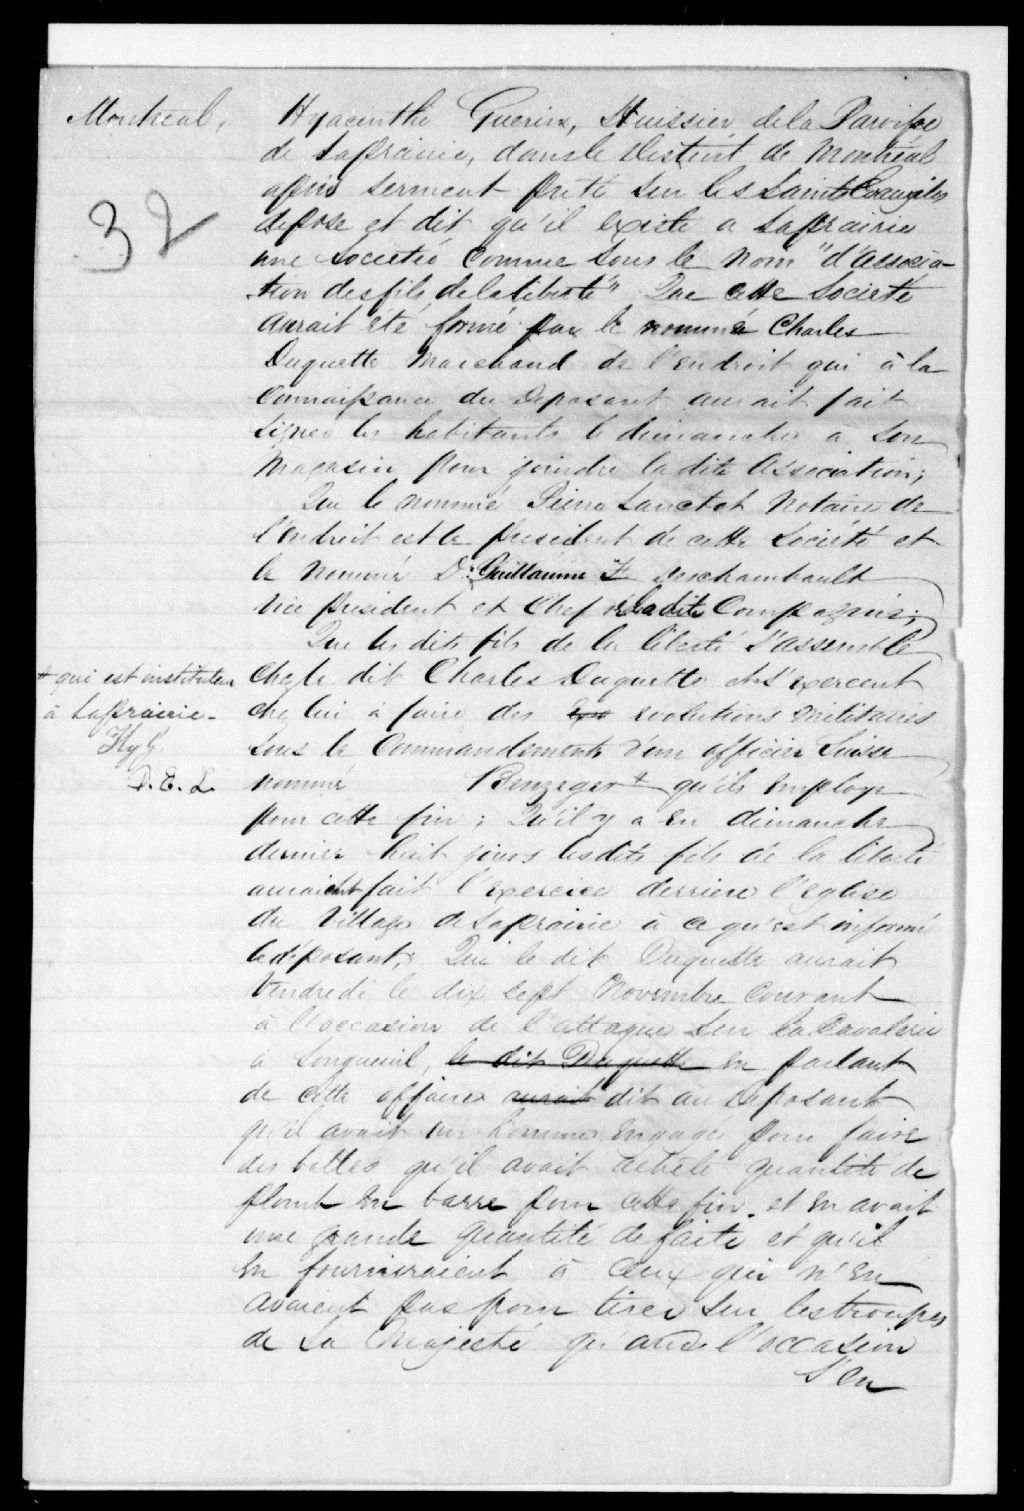 Montreal, Hyacinthe Guerin, Huissier de la Paroisse
de Laprairie, dans le District de Montréal
32
après serment prêté sur les Saints Evangiles
depose et dit qu'il existe a Laprairie
une Societé Connue sous le nom "d'Associa-
-tion des fils de la liberté" Que cette Societé
aurait eté formé par le nommé Charles
Duquette Marchand de l'endroit qui à la
Connaissance du Deposant aurait fait
signer les habitants le dimanche a son
Magasin pour joindre la dite Association;
Que le nommé Pierre Lanctot Notaire de
l'endroit est le president de cette Société et
le nommé Dr. Guillaume F Deschambault
Vice president et Chef de la dite Compagnie;
Que les dits fils de la liberté s'assemble
+ qui est instituteur
à Laprairie -
Hy G.
D. E. L.
chez le dit Charles Duquette et s'exercent
chez lui à faire des evolutions militaires
sous le Commandement d'un officier Suisse
nommé Benzeger + qu'ils employe
pour cette fin; Qu'il y a eu dimanche
dernier huit jours les dits fils de la liberté
auraient fait l'exercice derriere l'eglise
du Village de Laprairie à ce qu'est informé
le déposant; Que le dit Duquette aurait
Vendredi le dix sept Novembre Courant
à l'occasion de l'attaque sur la Cavalerie
à Longueuil, le dit Duquette en parlant
de cette affaire aurait dit au Deposant
qu'il avait un homme engagé pour faire
des balles qu'il avait acheté quantité de
plomb en barre pour cette fin. et en avait
une grande quantité de faite et qu'il
en fourniraient à Ceux qui n'en
avaient pas pour tirer sur les troupes
de Sa Majesté qu'and l'occasion
s'en